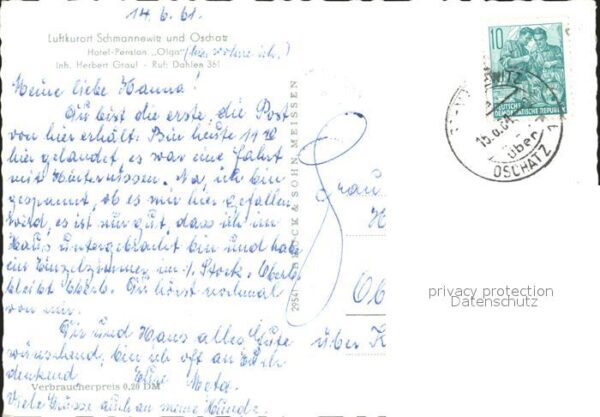 14.6.61.
Luftkurort Schmannewitz und Oschatz
Hotel-Pension „Olga" (hier wohne ich.)
Inh. Herbert Graul - Ruf: Dahlen 361
Meine liebe Hanna!
Du bist die erste, die Post
von hier erhält. Bin heute 11
hier gelandet, es war eine Fahrt
mit Hindernissen. Na, ich bin
gespannt, ob es mir hier gefallen
wird, es ist nur gut, dass ich im
Haus untergebracht bin und habe
ein Einzelzimmer im 1. Stock.
bleibt Du hörst nochmal
von mir.
Dir und Hans alles Gute
wünschend, bin ich oft an Euch
denkend Eure Meta.
Verbraucherpreis 0,20 DM
Viele Grüsse auch an meine Hunde.
& SOHN, MEISSEN
2954
Frau
H
Ob
über K
10
DEUTSCHE
DEMOKRATISCHE REPUBLIK
über
OSCHATZ 1
privacy protection
Datenschutz